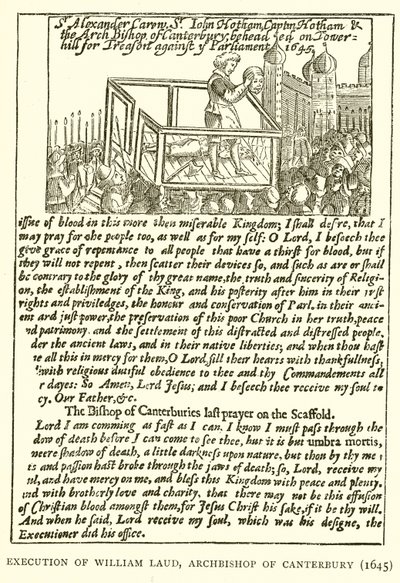 Sr. Alexander Carew, Sr. Iohn Hotham, Captin Hotham &
the Arch Bishop of Canterbury, behead ed on Tower=
hill for Treason against ye Parliament 1645.
issue of blood in this more then miserable Kingdom; I shall desire, that I
may pray for the people too, as well as for my self: O Lord, I beseech thee
give grace of repentance to all people that have a thirst for blood, but if
they will not repent, then scatter their devices so, and such as are or shall
be contrary to the glory of thy great name, the truth and sincerity of Religi-
on, the establishment of the King, and his posterity after him in their just
rights and priviledges, the honour and conservation of Parl. in their anci-
ent and just power, the preservation of this poor Church in her truth, peace
nd patrimony, and the settlement of this distracted and distressed people,
der the ancient laws, and in their native liberties; and when thou hast
ne all this in mercy for them, O Lord, fill their hearts with thankfullness,
with religious dutiful obedience to thee and thy Commandements all
r dayes: So Amen, Lord Jesus; and I beseech thee receive my soul to
cy. Our Father, &c.
The Bishop of Canterburies last prayer on the Scaffold.
Lord I am comming as fast as I can, I know I must pass through the
dow of death before I can come to see thee, but it is but umbra mortis,
meere shadow of death, a little darkness upon nature, but thou by thy me
ts and passion hast broke through the jaws of death; so, Lord, receive my
ul, and have mercy on me, and bless this Kingdom with peace and plenty,
and with brotherly love and charity, that there may not be this effusion
of Christian blood amongst them, for Jesus Christ his sake, if it be thy will.
And when he said, Lord receive my soul, which was his signe, the
Executioner did his office.
EXECUTION OF WILLIAM LAUD, ARCHBISHOP OF CANTERBURY (1645)